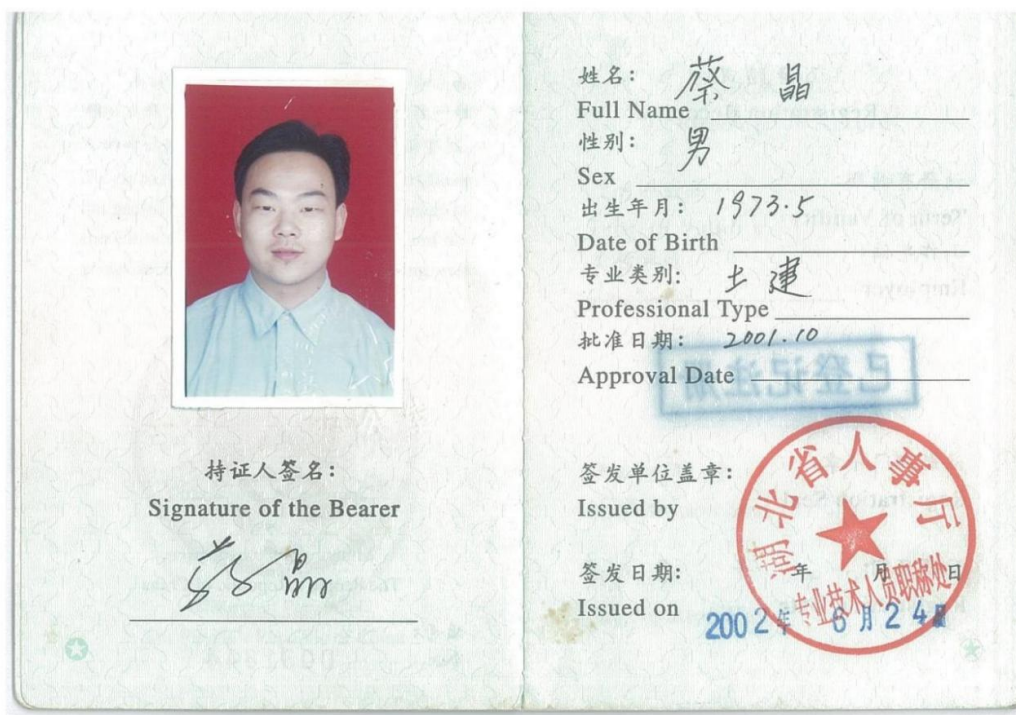 持证人签名:
Signature of the Bearer
蔡晶
姓名: 蔡晶
Full Name
性别: 男
Sex
出生年月: 1973.5
Date of Birth
专业类别: 土建
Professional Type
批准日期: 2001.10
Approval Date
已登记注册
签发单位盖章:
Issued by
湖北省人事厅
专业技术人员职称处
签发日期: 年 月 日
Issued on 2002年 6月24日